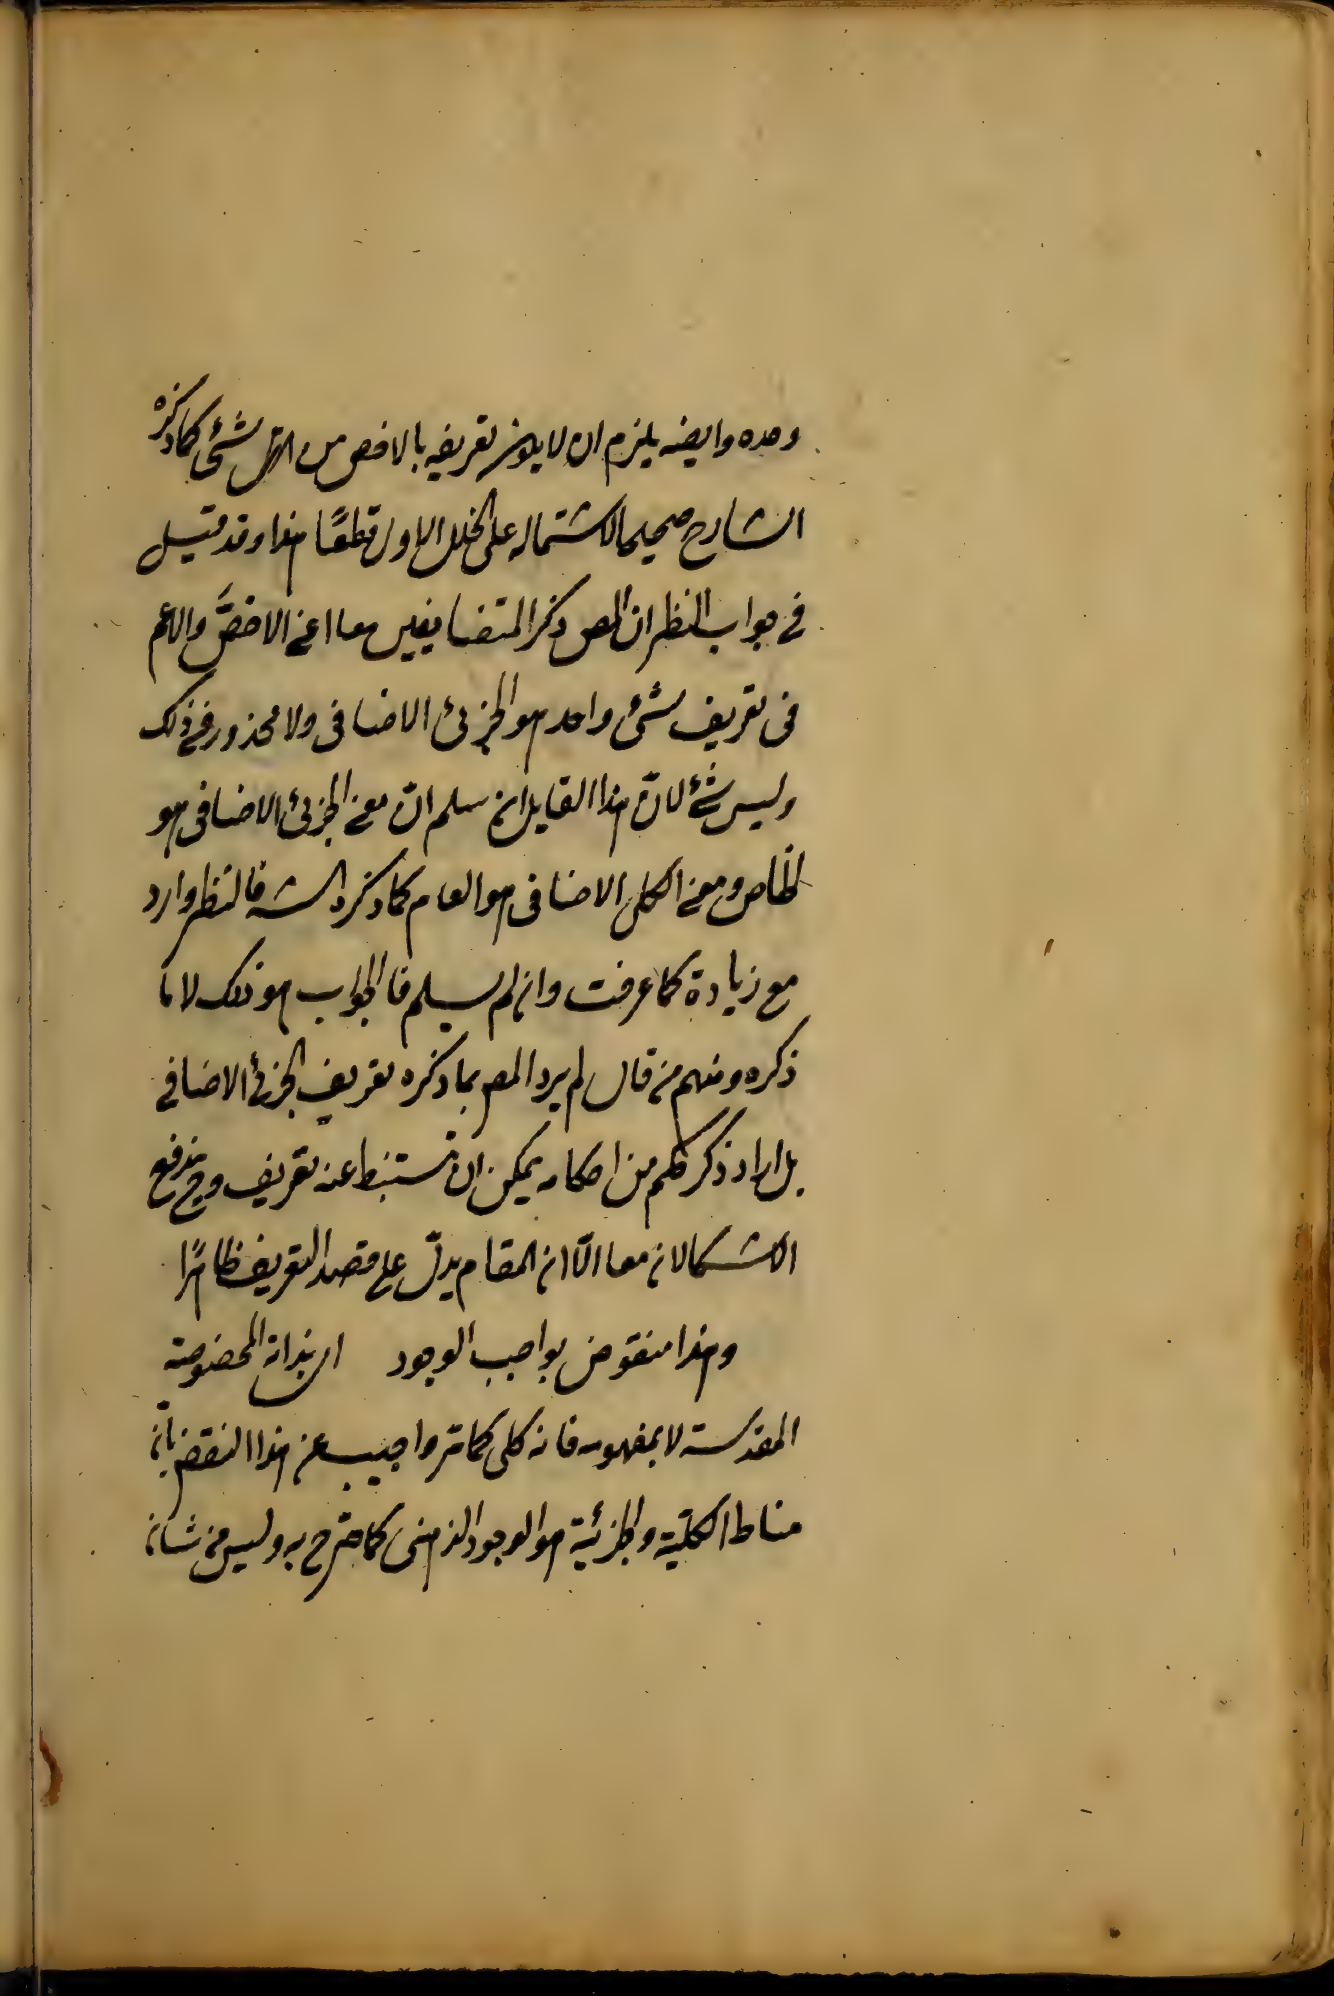 وحده وايضه يلزم ان لا يكون تعريفه بالاخص من شئ كما ذكره
الشارح صحيحا لاشتماله على الخلل الاول قطعًا هذا وقد قيل
في جواب النظر ان المص ذكر المتضايفين معا اعني الاخصّ والاعم
في تعريف شئ واحد هو الجزئ الاضافى ولا محذور في ذلك
وليس بشئ لانّ هذا القايل ان سلم انّ معنى الجزئ الاضافى هو
الخاص ومعنى الكلى الاضافى هو العام كما ذكره الشه فالنظر وارد
مع زيادة كما عرفت وان لم يسلم فالجواب هو ذلك لا ما
ذكره ومنهم من قال لم يرد المص بما ذكره تعريف الجزئ الاضافي
بل اراد ذكر حكم من احكامه يمكن ان تستنبط عنه تعريف وح يندفع
الاشكالان معا الّا ان المقام يدلّ على قصد التعريف ظاهرًا
وهذا منقوض بواجب الوجود اى بذاته المخصوصة
المقدسة لا بمفهومه فانه كلى كما مرّ واجيب عن هذا النقض بانّ
مناط الكليّة والجزئية هو الوجود الذهنى كما صرّح به وليس من شانه